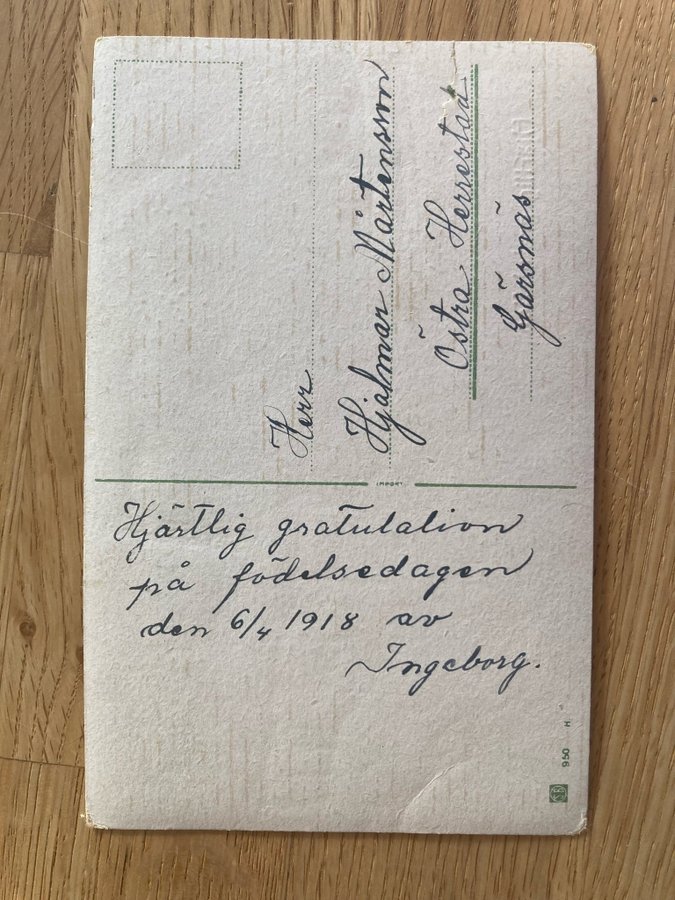 Herr
Hjalmar Mårtensson
Östra Herrestad
Gärsnäs
IMPORT
Hjärtlig gratulation
på födelsedagen
den 6/4 1918 av
Ingeborg.
950 H.